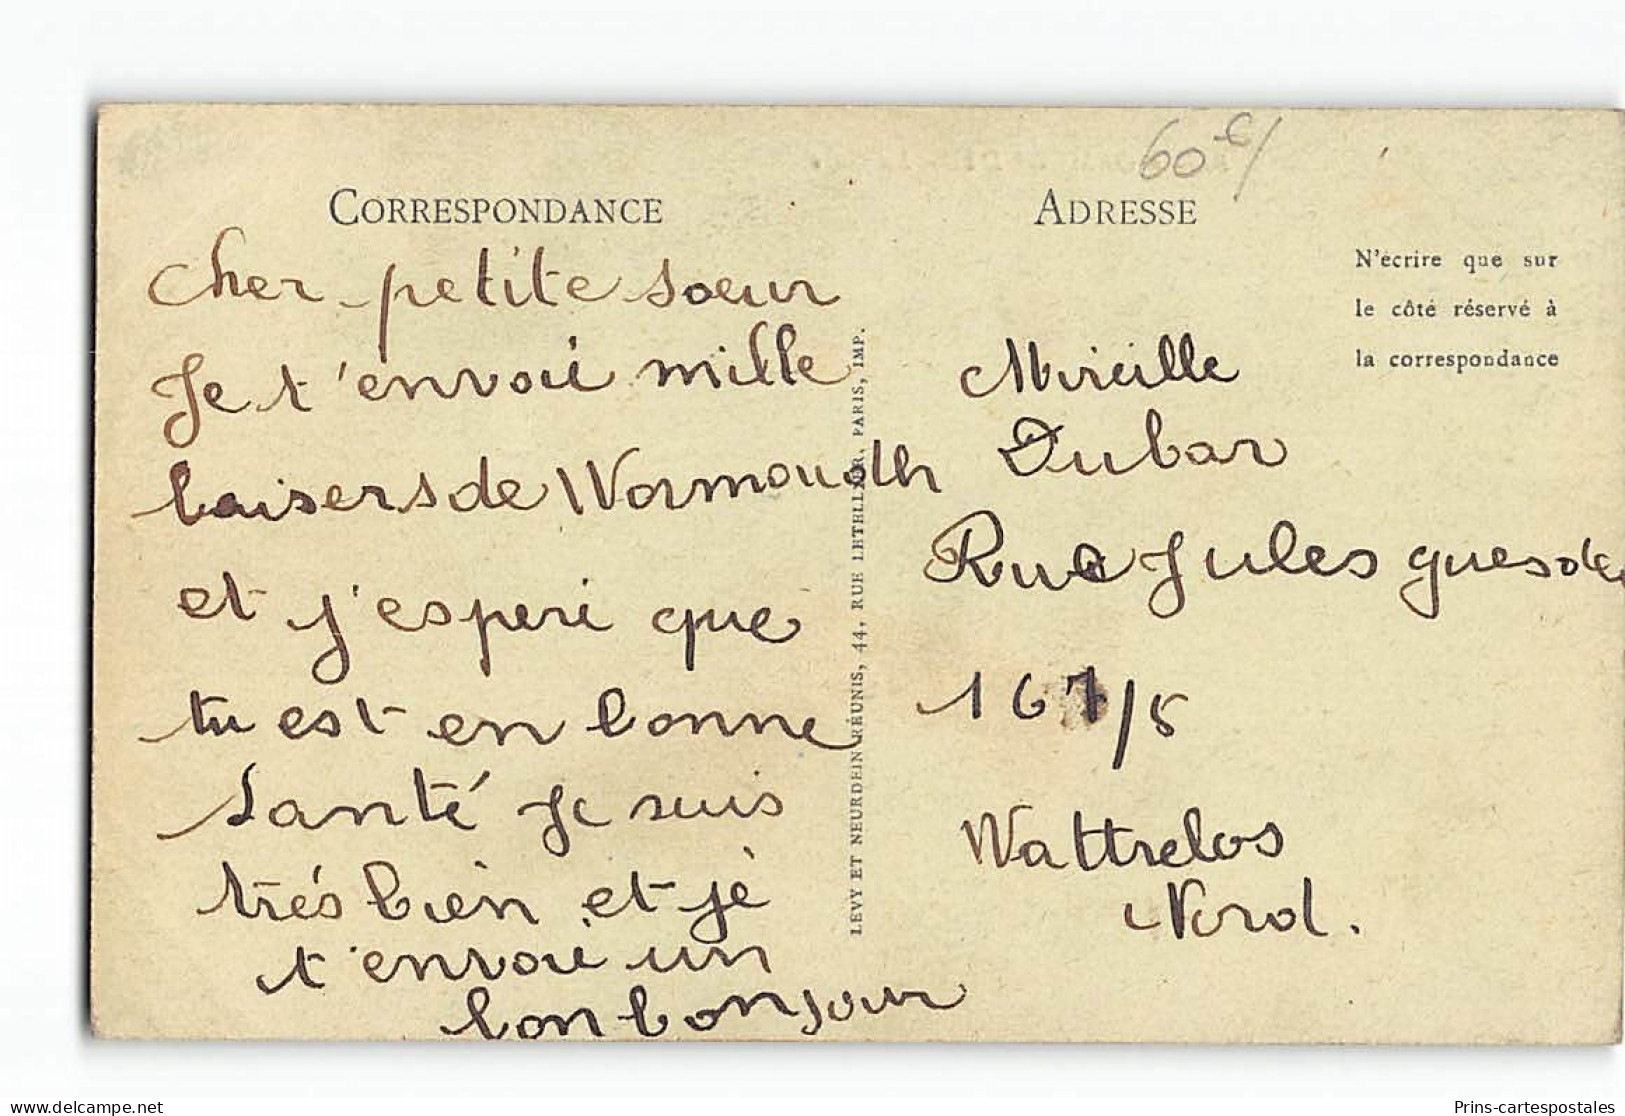 60 c/
CORRESPONDANCE
cher petite soeur
Je t'envoie mille
baisers de Wormoudh
et j'esperé que
tu est en bonne
Santé je suis
trés bien et jè
t'envoie un
bon bonjour
LEVY ET NEURDEIN RÉUNIS, 44, RUE LETELLIER, PARIS, IMP.
ADRESSE
N'écrire que sur
le côté réservé à
la correspondance
Mireille
Dubar
Rue Jules guesde
167/5
Wattrelos
Nord.
delcampe.net
Prins-cartespostales